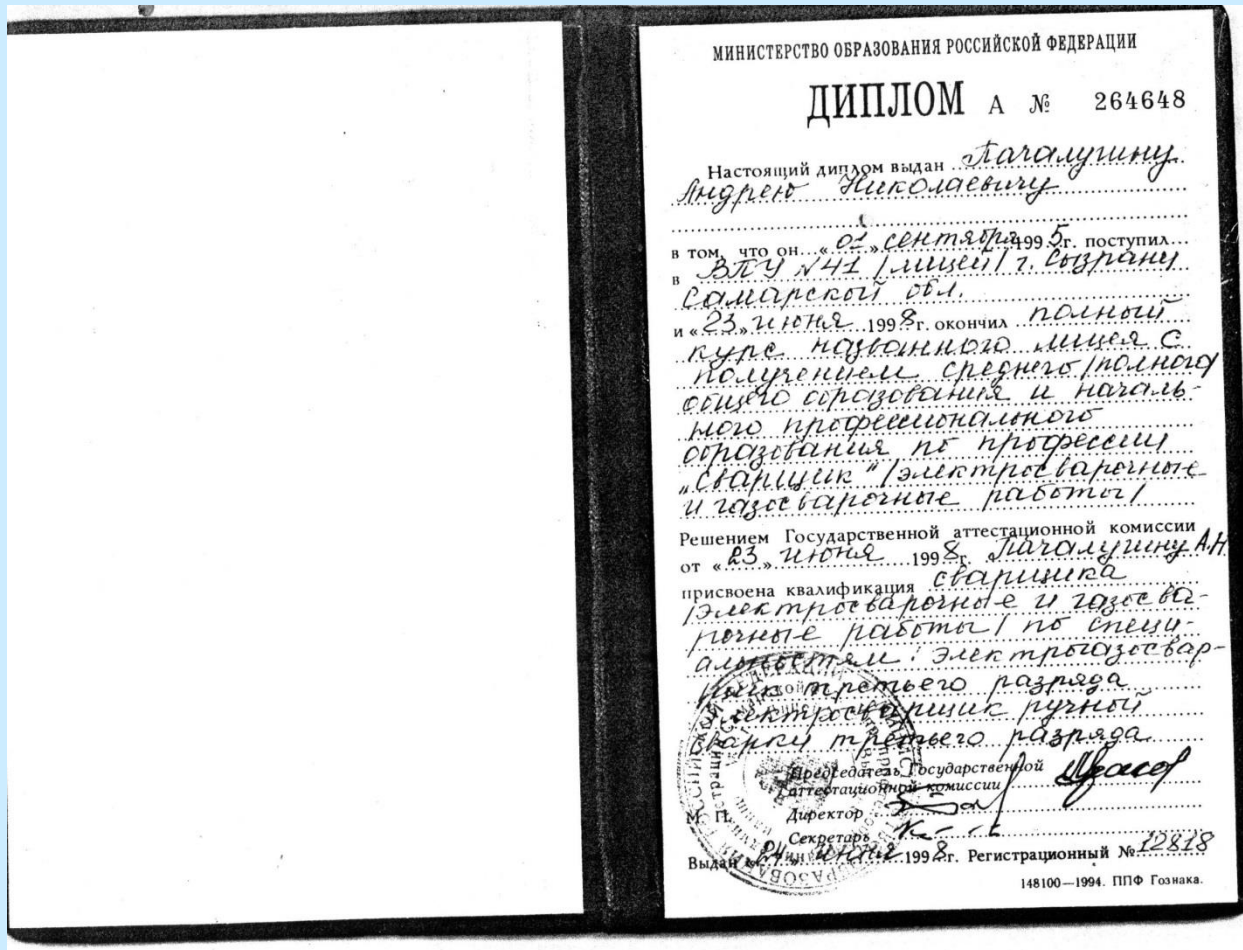 МИНИСТЕРСТВО ОБРАЗОВАНИЯ РОССИЙСКОЙ ФЕДЕРАЦИИ
ДИПЛОМ А № 264648
Настоящий диплом выдан Пачалугину
Андрею Николаевичу
в том, что он «01» сентября 1995 г. поступил
в ВПУ №41 /лицей/ г. Сызрани
Самарской обл.
и «23» июня 1998 г. окончил полный
курс названного лицея с
получением среднего /полного/
общего образования и началь-
ного профессионального
образования по профессии
„Сварщик" /электросварочные
и газосварочные работы/
Решением Государственной аттестационной комиссии
от «23» июня 1998 г. Пачалугину А.Н.
присвоена квалификация сварщика
/электросварочные и газосва-
рочные работы/ по специ-
альностям: электрогазосвар-
щик третьего разряда
электросварщик ручной
сварки третьего разряда
Председатель Государственной
аттестационной комиссии
М. П. Директор
Секретарь
Выдан «24» июня 1998 г. Регистрационный № 12818
148100—1994. ППФ Гознака.